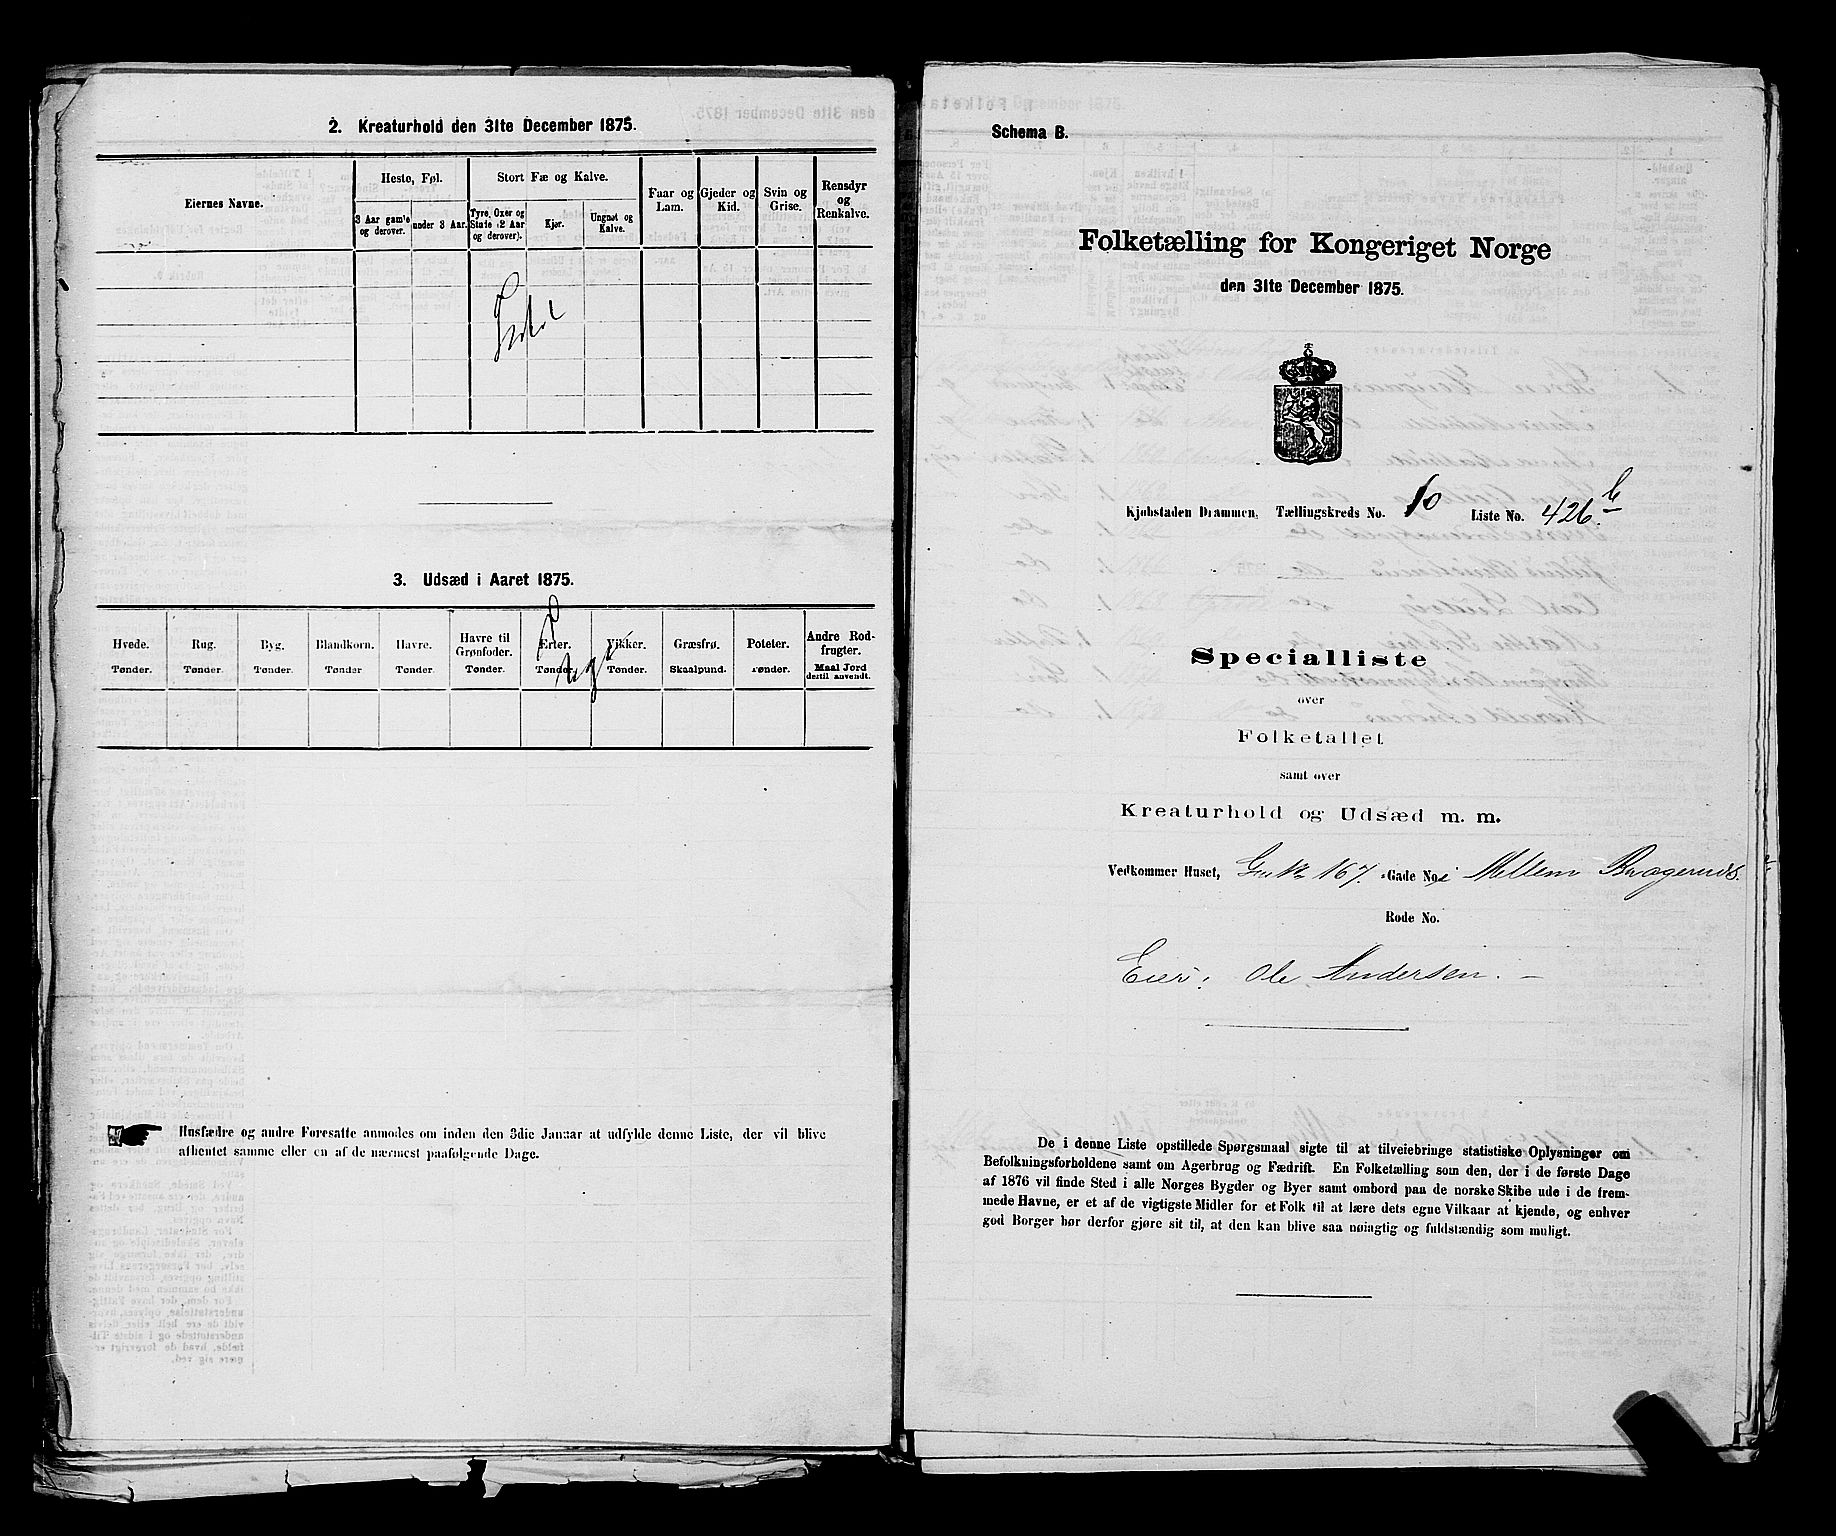 2. Kreaturhold den 31te December 1875.
Eiernes Navne.
Heste, Føl.
Stort Fæ og Kalve.
Faar og Lam.
Gjeder og Kid.
Svin og Grise.
Rensdyr og Renkalve.
3 Aar gamle og derover.
under 3 Aar.
Tyre, Oxer og Stute (2 Aar og derover).
Kjør.
Ungnøt og Kalve.
3. Udsæd i Aaret 1875.
Hvede. Tønder.
Rug. Tønder.
Byg. Tønder.
Blandkorn. Tønder.
Havre. Tønder.
Havre til Grønfoder. Tønder.
Erter. Tønder.
Vikker. Tønder.
Græsfrø. Skaalpund.
Poteter. Tønder.
Andre Rodfrugter. Maal Jord dertil anvendt.
Husfædre og andre Foresatte anmodes om inden den 3die Januar at udfylde denne Liste, der vil blive
afhentet samme eller en af de nærmest paafølgende Dage.
Schema B.
Folketælling for Kongeriget Norge
den 31te December 1875.
Kjøbstaden Drammen, Tællingskreds No. 10 Liste No. 426 b
Specialliste
over
Folketallet
samt over
Kreaturhold og Udsæd m. m.
Vedkommer Huset, 167. Gade No. i Mellem Bragernds.
Rode No.
Eier: Ole Andersen. –
De i denne Liste opstillede Spørgsmaal sigte til at tilveiebringe statistiske Oplysninger om
Befolkningsforholdene samt om Agerbrug og Fædrift. En Folketælling som den, der i de første Dage
af 1876 vil finde Sted i alle Norges Bygder og Byer samt ombord paa de norske Skibe ude i de frem-
mede Havne, er et af de vigtigste Midler for et Folk til at lære dets egne Vilkaar at kjende, og enhver
god Borger bør derfor gjøre sit til, at den kan blive saa nøiagtig og fuldstændig som muligt.